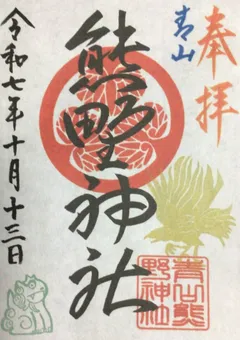 奉拝
青山
熊野神社
令和七年十月十三日
青山熊
野神社